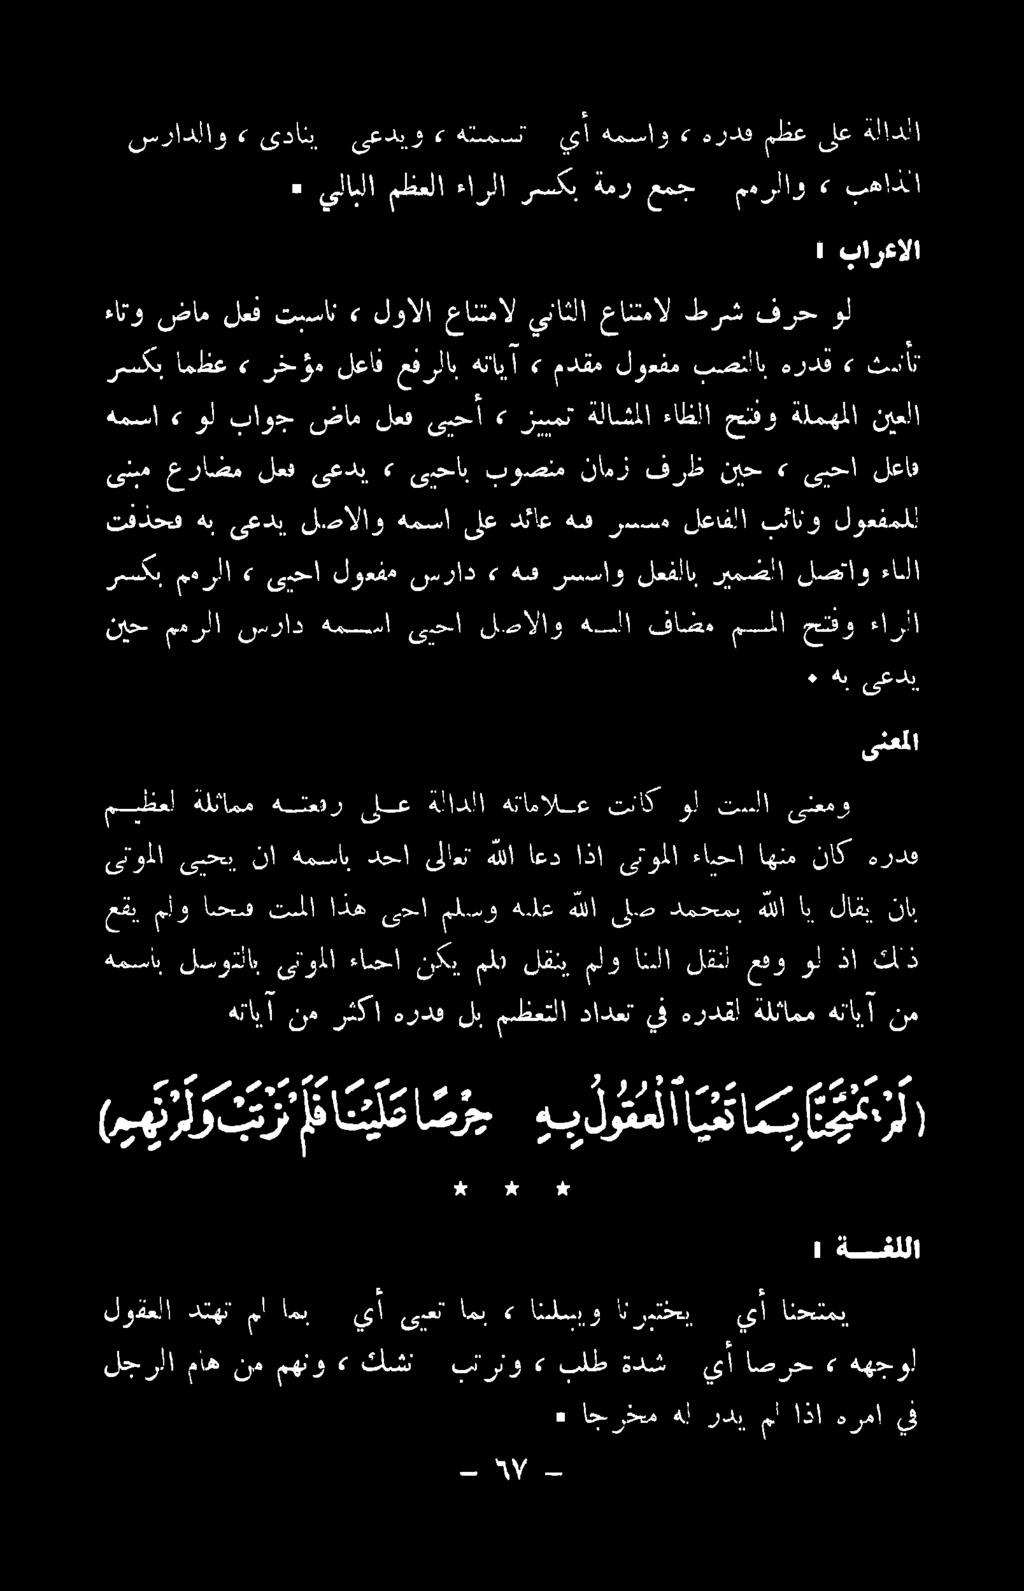 الدالة على عظم قدره ، واسمه أي تسميته ، ويدعى ينادى ، والدارس
الذاهب ، والرمم جمع رمة بكسر الراء العظم البالي .
الاعراب :
لو حرف شرط لامتناع الثاني لامتناع الاول ، ناسبت فعل ماض وتاء
تأنيث ، قدره بالنصب مفعول مقدم ، آياته بالرفع فاعل مؤخر ، عظما بكسر
العين المهملة وفتح الظاء المشالة تمييز ، أحيى فعل ماض جواب لو ، اسمه
فاعل احيى ، حين ظرف زمان منصوب باحيى ، يدعى فعل مضارع مبني
للمفعول ونائب الفاعل مستتر فيه عائد على اسمه والاصل يدعى به فحذفت
الباء واتصل الضمير بالفعل واستتر فيه ، دارس مفعول احيى ، الرمم بكسر
الراء وفتح الميم مضاف اليه والاصل احيى اسمه دارس الرمم حين
يدعى به .
المعنى
ومعنى البيت لو كانت علاماته الدالة على رفعته مماثلة لعظيم
قدره كان منها احياء الموتى اذا دعا الله تعالى احد باسمه ان يحيي الموتى
بان يقال يا الله بمحمد صلى الله عليه وسلم احي هذا الميت فيحيا ولم يقع
ذلك اذ لو وقع لنقل الينا ولم ينقل فلم يكن احياء الموتى بالتوسل باسمه
من آياته مماثلة لقدره في تعداد التعظيم بل قدره اكثر من آياته
(لَمْ يَمْتَحِنَّا بِمَا تَعْيَا الْعُقُولُ بِهِ حِرْصًا عَلَيْنَا فَلَمْ نَرْتَبْ وَلَمْ نَهِمِ)
★ ★ ★
اللغة :
يمتحنا أي يختبرنا ويبتلينا ، بما تعيى أي بما لم تهتد العقول
لوجهه ، حرصا أي شدة طلب ، ونرتب نشك ، ونهم من هام الرجل
في امره اذا لم يدر له مخرجا .
– ٦٧ –